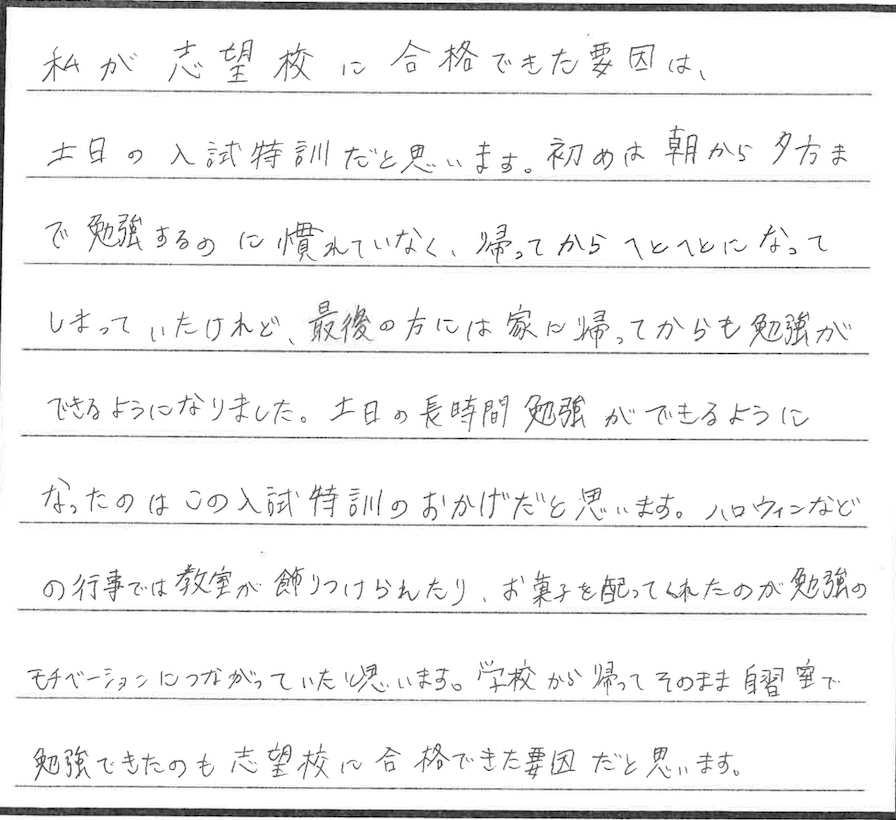 私が志望校に合格できた要因は、
土日の入試特訓だと思います。初めは朝から夕方ま
で勉強するのに慣れていなく、帰ってからへとへとになって
しまっていたけれど、最後の方には家に帰ってからも勉強が
できるようになりました。土日の長時間勉強ができるように
なったのはこの入試特訓のおかげだと思います。ハロウィンなど
の行事では教室が飾りつけられたり、お菓子を配ってくれたのが勉強の
モチベーションにつながっていたと思います。学校から帰ってそのまま自習室で
勉強できたのも志望校に合格できた要因だと思います。